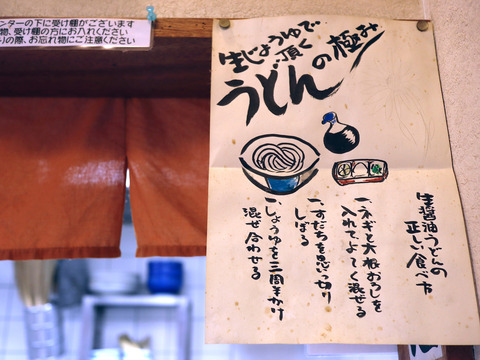 ンターの下に受け棚がございます
物、受け棚の方にお入れください
の際、お忘れ物にご注意ください
生じょうゆで
頂く
うどんの極み
生醤油うどんの
正しい食べ方
一、ネギと大根おろしを
入れてよーく混ぜる
一、すだちを思い切り
しぼる
一、しょうゆを二、三周半かけ
混ぜ合わせる